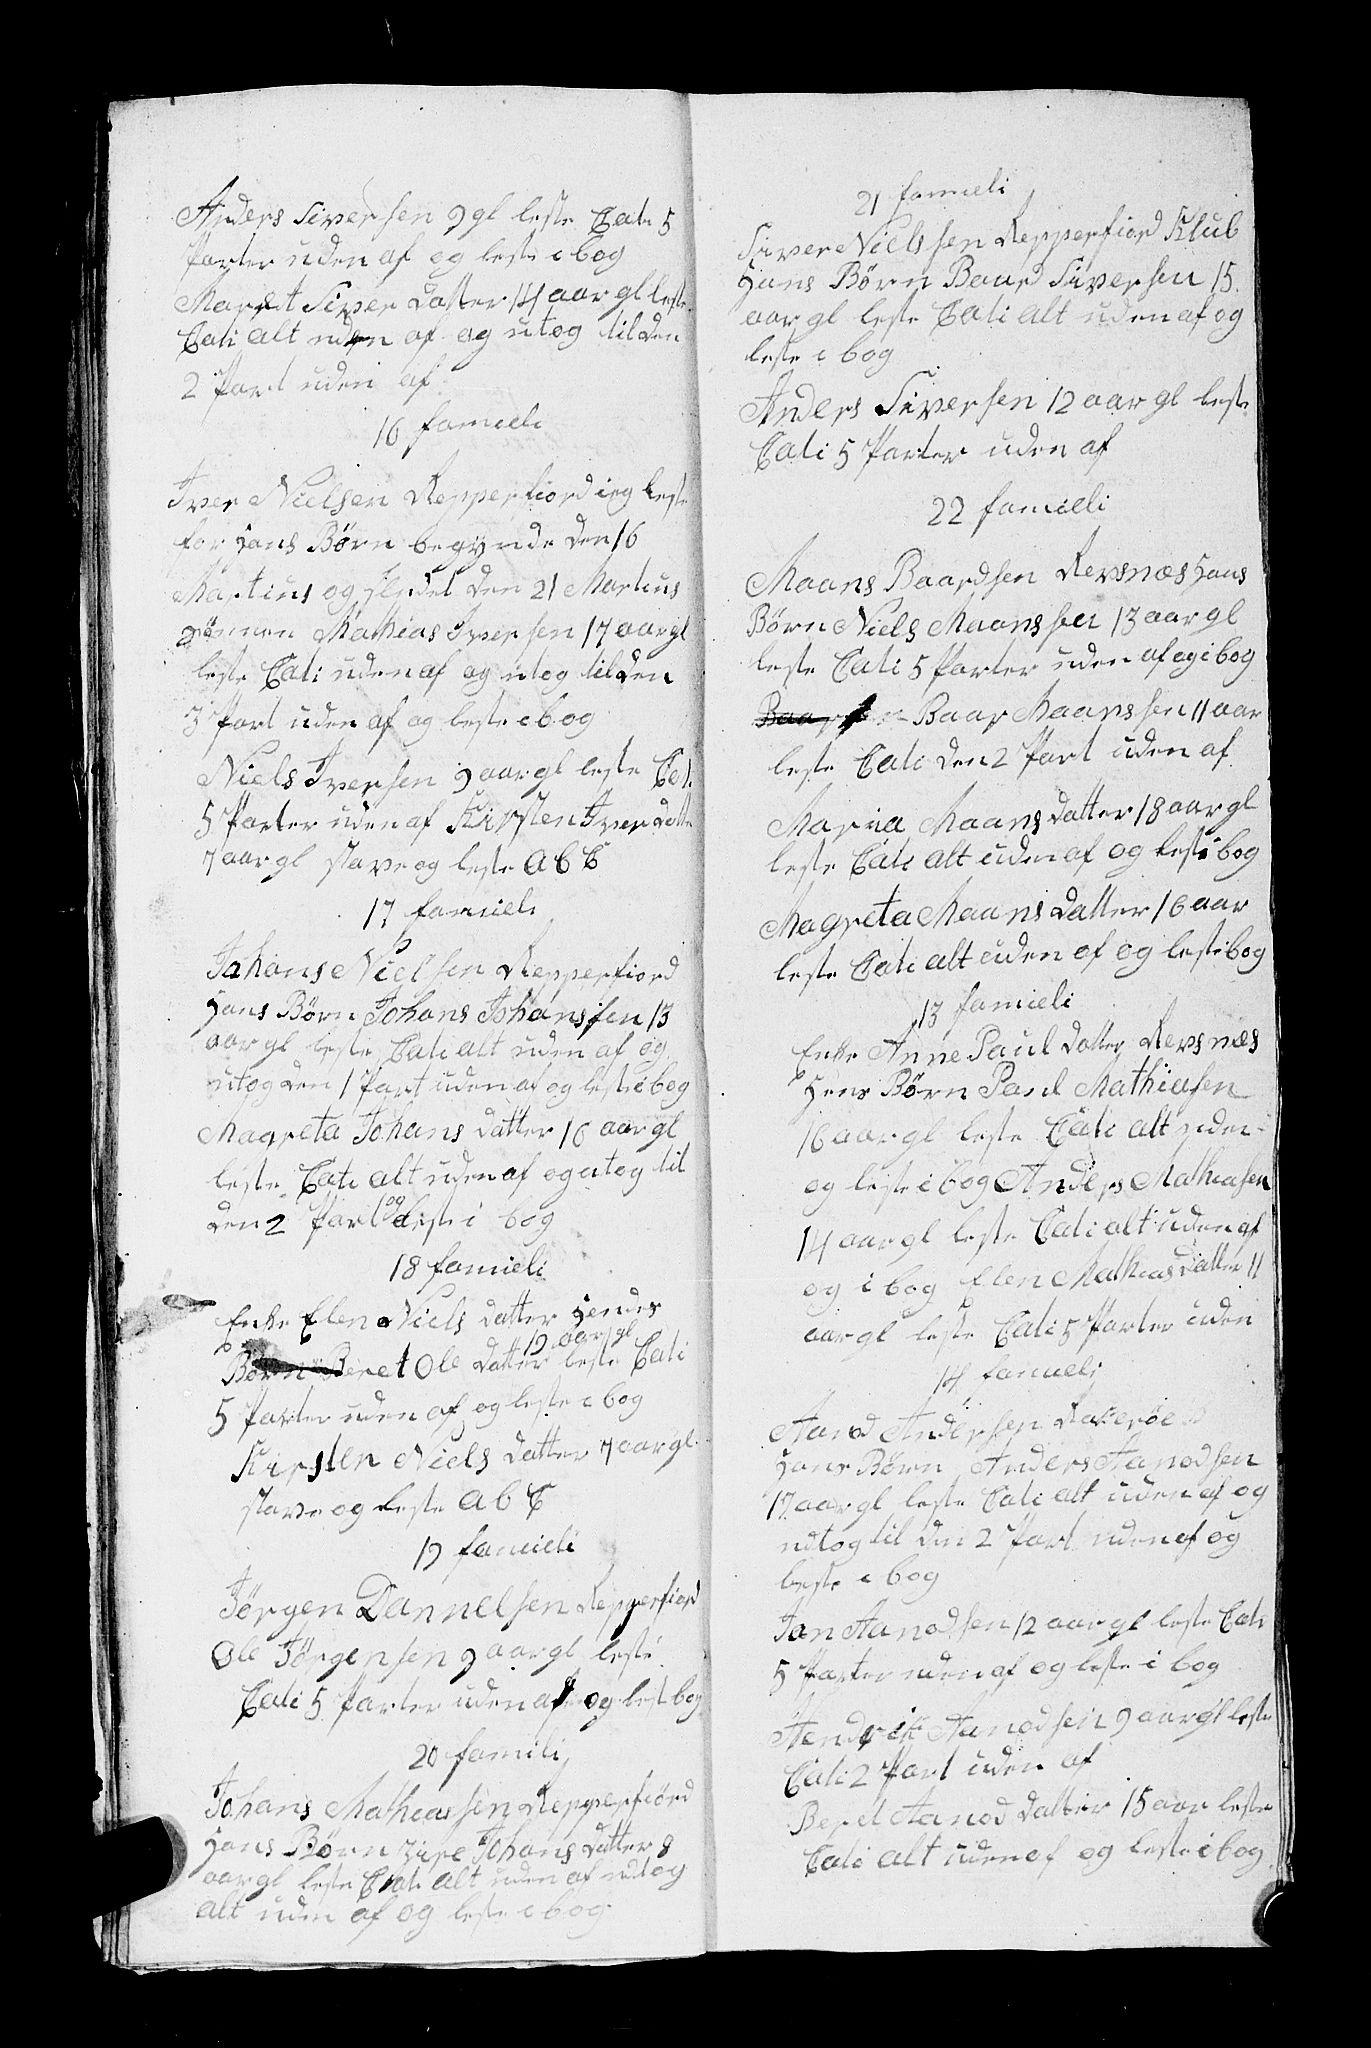 Anders Siversen 9 gl leste Cati 5
Parter uden af og leste i bog
Maret Siver datter 14 aar gl leste
Cati alt uden af og utog til den
2 Part uden af
16 famieli
Iver Nielsen Repperfiord ieg leste
for Hans Børn begynde den 16
Martius og endet den 21 Martius
Sønnen Mathias Iversen 17 aar gl
leste Cati uden af og utog til den
3 Part uden af og leste i bog
Niels Iversen 9 aar gl leste Cat
5 Parter uden af Kirsten Iver datte
7 aar gl stave og leste A b C
17 famieli
Johans Nielsen Repperfiord
Hans Børn Johans Johanssen 13
aar gl leste Cati alt uden af og
utog den 1 Part uden af og leste i bog
Magreta Johans datter 16 aar gl
leste Cati alt uden af og utog til
den 2 Part og leste i bog
18 famieli
Enke Elen Niels datter Hendes
19 aar gl
Børn Beret Ole datter leste Cati
5 Parter uden af og leste i bog
Kirsten Niels datter 7 aar gl
stave og leste A b C
19 famieli
Jørgen Dannelsen Repperfiord
Ole Jørgensen 9 aar gl leste
Cati 5 Parter uden af og lest bog
20 famili
Johans Mathiassen Repperfiord
Hans Børn Zire Johans datter 8
aar gl leste Cati alt uden af udtog
alt uden af og leste i bog
21 famieli
Siver Nielssen Repperfiord Klub
Hans Børn Baar Siversen 15
aar gl leste Cati alt uden af og
leste i bog
Anders Siversen 12 aar gl leste
Cati 5 Parter uden af
22 famieli
Maans Baardsen Revsnæs Hans
Børn Niels Maanssen 13 aar gl
leste Cati 5 Parter uden af og i bog
Baar Maanssen 11 aar
leste Cati den 2 Part uden af
Maria Maans datter 18 aar gl
leste Cati alt uden af og lest i bog
Magreta Maans datter 16 aar
leste Cati alt uden af og lest i bog
13 famieli
Enke Anne Paul datter Revsnæs
Hens Børn Paul Mathiasen
16 aar gl leste Cati alt uden
og leste i bog Anders Mathiasen
14 aar gl leste Cati alt uden af
og i bog Elen Mathias datter 11
aar gl leste Cati 5 Parter uden
14 famieli
Aanod Andersen
Hans Børn Anders Aanodsen
17 aar gl leste Cati alt uden af og
udtog til den 2 Part uden af og
leste i bog
Jan Aanodsen 12 aar gl leste Cati
5 Parter uden af og leste i bog
Hendrik Aanodsen 9 aar gl leste
Cati 2 Part uden af
Beret Aanod datter 15 aar leste
Cati alt uden af og leste i bog